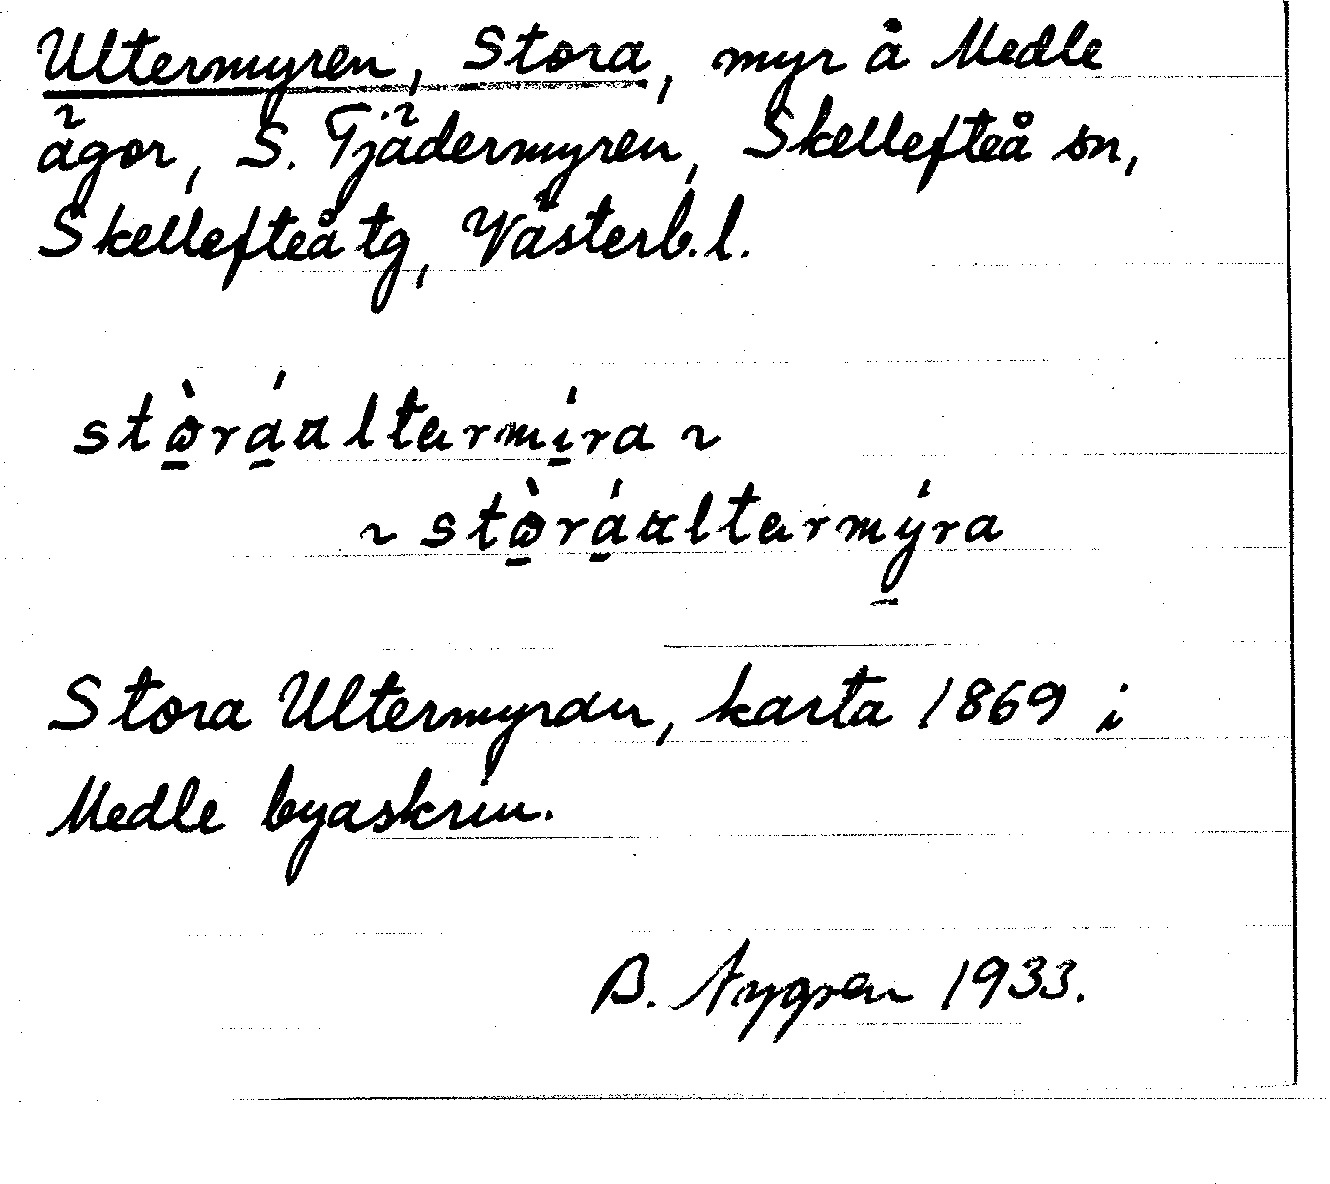 Ultermyren, Stora, myr å Medle
ägor, S. Tjädermyren, Skellefteå sn,
Skellefteå tg, Västerb. l.
stɷ̱̀rá̱ɑltɑrmí̱ra ~
~ stɷ̱̀rá̱ɑltɑrmý̱ra
Stora Ultermyran, karta 1869 i
Medle byaskrin.
B. Nygren 1933.